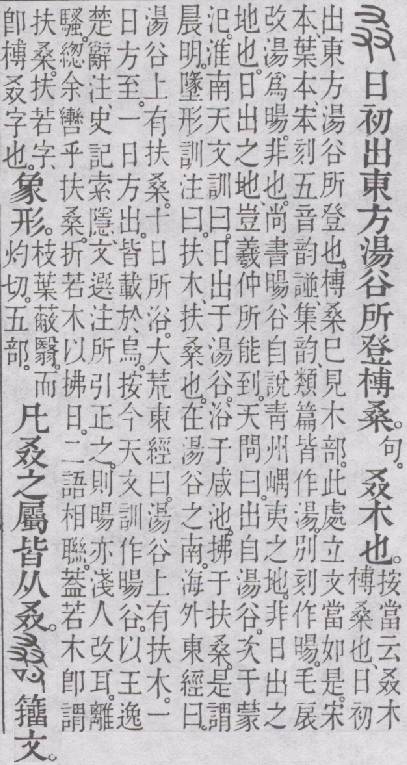 叒日初出東方湯谷所登榑桑。句。叒木也。按當云叒木榑桑也、日初
出東方湯谷所登也。榑桑已見木部。此處立文當如是。宋
本、葉本、宋刻五音韵譜、集韵、類篇皆作湯。別刻作暘。毛扆
改湯爲暘。非也。尚書暘谷自說靑州嵎夷之地。非日出之
地也。日出之地、豈羲仲所能到。天問曰。出自湯谷。次于蒙
汜。淮南天文訓曰。日出于湯谷。浴于咸池。拂于扶桑。是謂
晨明。墬形訓注曰。扶木、扶桑也。在湯谷之南。海外東經曰。
湯谷上有扶桑。十日所浴。大荒東經曰。湯谷上有扶木。一
日方至。一日方出。皆載於烏。按今天文訓作暘谷。以王逸
楚辭注、史記索隱、文選注所引正之。則暘亦淺人改耳。離
騷。緫余轡乎扶桑。折若木以拂日。二語相聯。葢若木卽謂
扶桑。扶若字、卽榑叒字也。象形。枝葉蔽翳。而灼切。五部。凡叒之屬皆从叒。籒文。